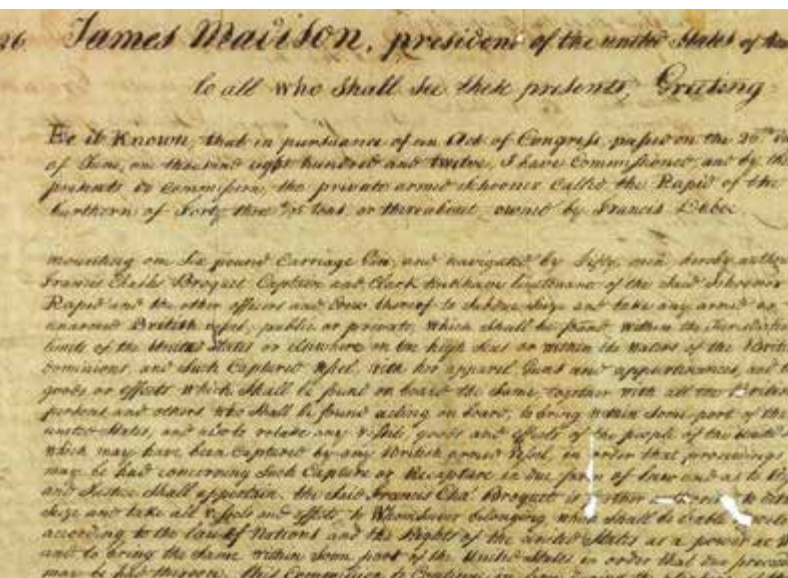 26. James Madison, president of the united States of
to all who Shall See these presents, Greeting:
Be it Known, that in pursuance of an Act of Congress, passed on the 26th
of June, one thousand eight hundred and twelve, I have Commissioned, and by
presents do commission, the private armed Schooner Called the Rapid of the
burthern of Forty three tons, or thereabout, owned by Francis
mounting one Six pound Carriage Gun, and navigated by fifty men hereby
Francis Charles Broquet Captain and Clark lieutenant of the Said Schooner
Rapid and the other officers and Crew thereof to Subdue Seize and take any armed or
unarmed British vessel, public or private, which shall be found within the
limits of the United States or elsewhere on the high Seas or within the waters of the
dominions, and Such Captured vessel, with her apparel, Guns and appurtenances, and
goods or effects which Shall be found on board the Same, together with all the British
persons and others who Shall be found acting on board, to bring within Some port of the
united States, and also to retake any vessels, goods and effects of the people of the
which may have been Captured by any British armed vessel, in order that proceedings
may be had concerning Such Capture or Recapture in due form of law and as to
and Justice Shall appertain. the Said Francis Chas. Broquet is further to
Seize and take all vessels and effects to Whomsoever belonging, which shall be liable
according to the law of Nations and the Rights of the united States as a power at
and to bring the Same within Some port of the United States in order that due
may be had thereon. this Commission to Continue in